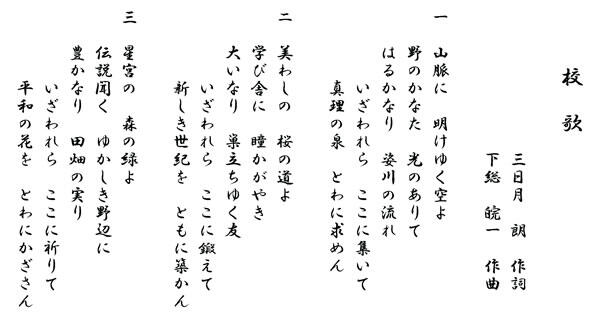 校歌
三日月 朗 作詞
下総 皖一 作曲
一 山脈に 明けゆく空よ
野のかなた 光のありて
はるかなり 姿川の流れ
いざわれら ここに集いて
真理の泉 とわに求めん
二 美わしの 桜の道よ
学び舎に 瞳かがやき
大いなり 巣立ちゆく友
いざわれら ここに鍛えて
新しき世紀を ともに築かん
三 星宮の 森の緑よ
伝説聞く ゆかしき野辺に
豊かなり 田畑の実り
いざわれら ここに祈りて
平和の花を とわにかざさん